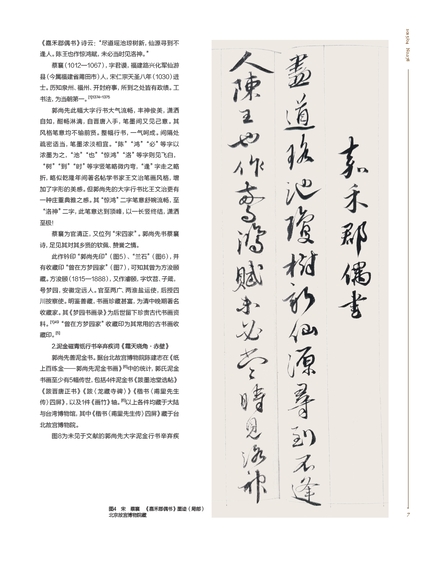 《嘉禾郡偶书》诗云：“尽道瑶池琼树新，仙源寻到不
逢人。陈王也作惊鸿赋，未必当时见洛神。”
蔡襄（1012—1067），字君谟，福建路兴化军仙游
县（今属福建省莆田市）人，宋仁宗天圣八年（1030）进
士。历知泉州、福州、开封府事，所到之处皆有政绩。工
书法，为当朝第一。
郭尚先此幅大字行书大气流畅，丰神俊美，潇洒
自如，酣畅淋漓，自晋唐入手，笔墨间又见己意。其
风格笔意均不输前贤。整幅行书，一气呵成，间隔处
疏密适当，笔墨浓淡相宜。“陈”“鸿”“必”等字以
浓墨为之，“池”“也”“惊鸿”“洛”等字则见飞白，
“树”“到”“时”等字竖笔略微内弯，“逢”字走之略
折，略似乾隆年间著名帖学书家王文治笔画风格，增
加了字形的美感。但郭尚先的大字行书比王文治更有
一种庄重典雅之感。其“惊鸿”二字笔意舒婉流畅，至
“洛神”二字，此笔意达到顶峰，以一长竖终结，潇洒
至极！
蔡襄为官清正，又位列“宋四家”。郭尚先书蔡襄
诗，足见其对其乡贤的钦佩、赞誉之情。
此作钤印“郭尚先印”（图5）、“兰石”（图6），并
有收藏印“曾在方梦园家”（图7），可知其曾为方浚颐
藏。方浚颐（1815—1888），又作濬颐，字饮苕，子箴，
号梦园，安徽定远人。官至两广、两淮盐运使，后授四
川按察使。明鉴善藏，书画珍藏甚富，为清中晚期著名
收藏家。其《梦园书画录》为后世留下珍贵古代书画资
料。“曾在方梦园家”收藏印为其常用的古书画收
藏印。
2.泥金磁青纸行书辛弃疾词《霜天晓角·赤壁》
郭尚先善泥金书。据台北故宫博物院陈建志在《纸
上百练金——郭尚先泥金书画》中的统计，郭氏泥金
书画至少有5幅传世，包括4件泥金书《跋墨池堂选帖》
《跋晋唐正书》《跋〈龙藏寺碑〉》《楷书〈甫里先生
传〉四屏》，以及1件《画竹》轴。以上各件均藏于大陆
与台湾博物馆，其中《楷书〈甫里先生传〉四屏》藏于台
北故宫博物院。
图8为未见于文献的郭尚先大字泥金行书辛弃疾
嘉禾郡偶书
尽道瑶池琼树新仙源寻到不逢
人陈王也作惊鸿赋未必当时见洛神
图4 宋 蔡襄 《嘉禾郡偶书》墨迹（局部）
北京故宫博物院藏
7